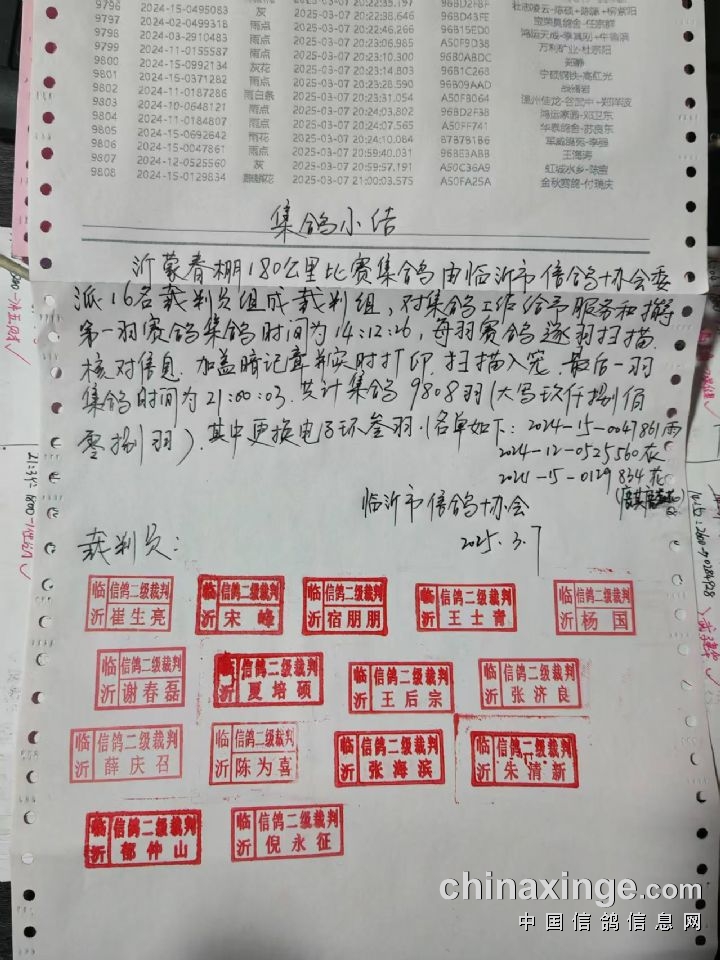 9796 2024-15-0495083 灰 2025-03-07 20:22:35.197 96BD2FBF
9797 2024-02-0499318 雨点 2025-03-07 20:22:38.646 96BD43FE
9798 2024-03-2910483 雨点 2025-03-07 20:22:46.266 96B15ED0
9799 2024-11-0155587 雨点 2025-03-07 20:23:06.985 A50F9D38
9800 2024-15-0992134 灰花 2025-03-07 20:23:10.300 96B0ABDC 郑静
9801 2024-15-0371282 雨点 2025-03-07 20:23:14.803 96B1C268
9802 2024-11-0187286 雨白条 2025-03-07 20:23:28.590 96B09AAD
9803 2024-10-0648121 雨点 2025-03-07 20:23:31.054 A50FB064
9804 2024-11-0184807 雨点 2025-03-07 20:24:03.802 96BD2F38
9805 2024-15-0692642 雨花 2025-03-07 20:24:07.565 A50FF741 华泰鸽舍-苏良东
9806 2024-15-0047861 雨点 2025-03-07 20:24:10.084 B7B781B6
9807 2024-12-0525560 灰 2025-03-07 20:59:40.031 96BE3ABB 王海涛
9808 2024-15-0129834 2025-03-07 20:59:57.191 A50C36A9 虹城水乡-陈雷
2025-03-07 21:00:03.575 A50FA25A 金秋赛鸽-付瑞庆
集鸽小结
沂蒙春棚180公里比赛集鸽由临沂市信鸽协会委
派16名裁判员组成裁判组，对集鸽工作给予服务和指导
第一羽赛鸽集鸽时间为14:12:26，每羽赛鸽逐羽扫描.
核对信息.加盖暗记章并实时打印.扫描入笼.最后一羽
集鸽时间为21:00:03.共计集鸽9808羽(大写玖仟捌佰
零捌羽).其中更换电子环叁羽.(名单如下：2024-15-0047861雨
2024-12-0525560灰
2024-15-0129834花
临沂市信鸽协会
2025.3.7
裁判员：
临沂 信鸽二级裁判 崔生亮
临沂 信鸽二级裁判 宋峰
临沂 信鸽二级裁判 宿朋朋
临沂 信鸽二级裁判 王士青
临沂 信鸽二级裁判 杨国
临沂 信鸽二级裁判 谢春磊
临沂 信鸽二级裁判 夏培硕
临沂 信鸽二级裁判 王后宗
临沂 信鸽二级裁判 张济良
临沂 信鸽二级裁判 薛庆召
临沂 信鸽二级裁判 陈为喜
临沂 信鸽二级裁判 张海滨
临沂 信鸽二级裁判 朱清新
临沂 信鸽二级裁判 郁仲山
临沂 信鸽二级裁判 倪永征
chinaxinge.com
中国信鸽信息网